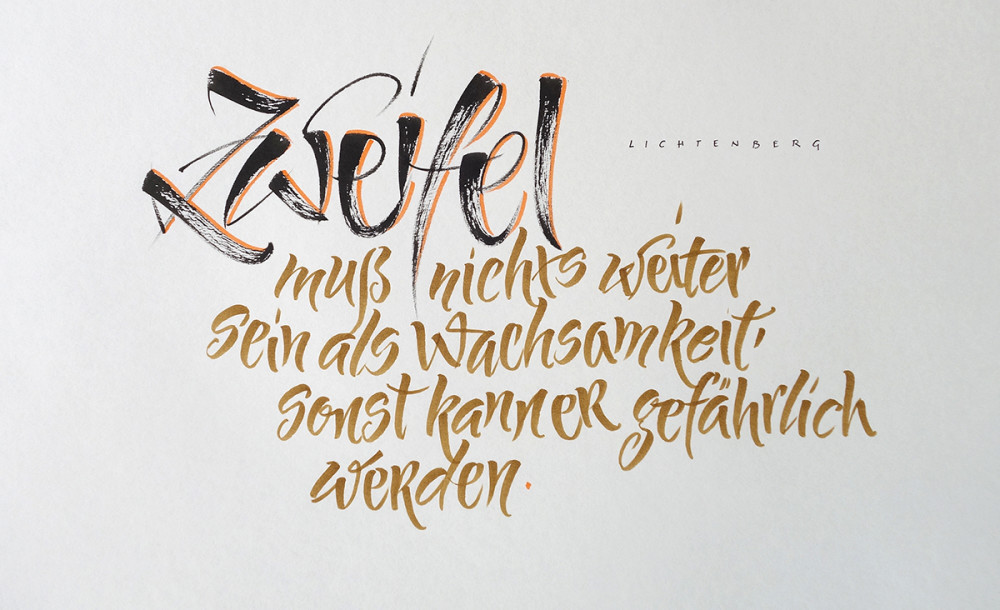 Zweifel
LICHTENBERG
muß nichts weiter
sein als Wachsamkeit,
sonst kann er gefährlich
werden.